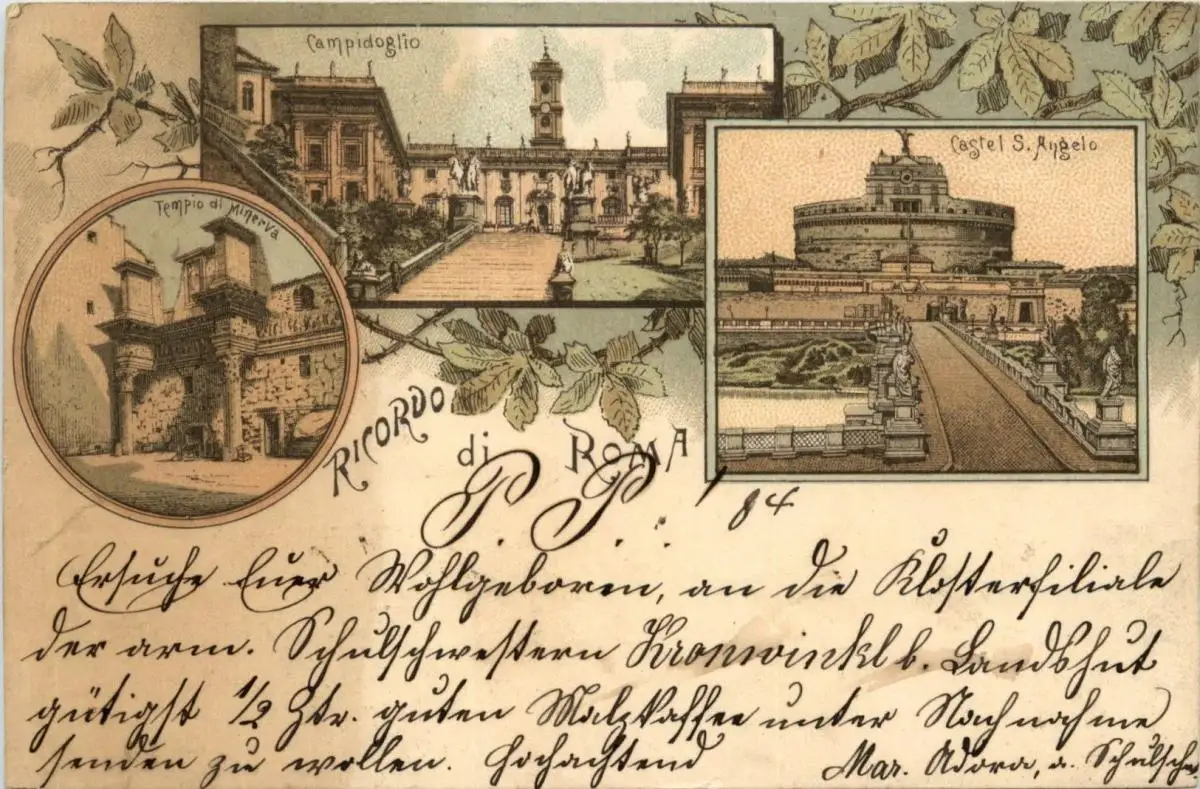 Campidoglio
Castel S. Angelo
Tempio di Minerva
RICORDO
di ROMA
P. P. 1/84
Ersuche Euer Wohlgeboren, an die Klosterfiliale
der arm. Schulschwestern Kronwinkl b. Landshut
gütigst 1/2 Ztr. guten Malzkaffee unter Nachnahme
senden zu wollen. Hochachtend
Mar. Adora, a. Schulschw.